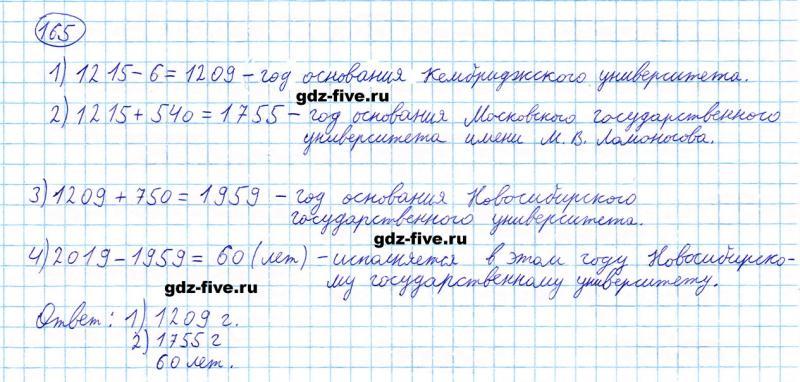 165
1) 1215 - 6 = 1209 - год основания Кембриджского университета.
gdz-five.ru
2) 1215 + 540 = 1755 - год основания Московского государственного
университета имени М. В. Ломоносова.
3) 1209 + 750 = 1959 - год основания Новосибирского
государственного университета.
gdz-five.ru
4) 2019 - 1959 = 60 (лет) - исполняется в этом году Новосибирско-
му государственному университету.
gdz-five.ru
Ответ: 1) 1209 г.
2) 1755 г
60 лет.